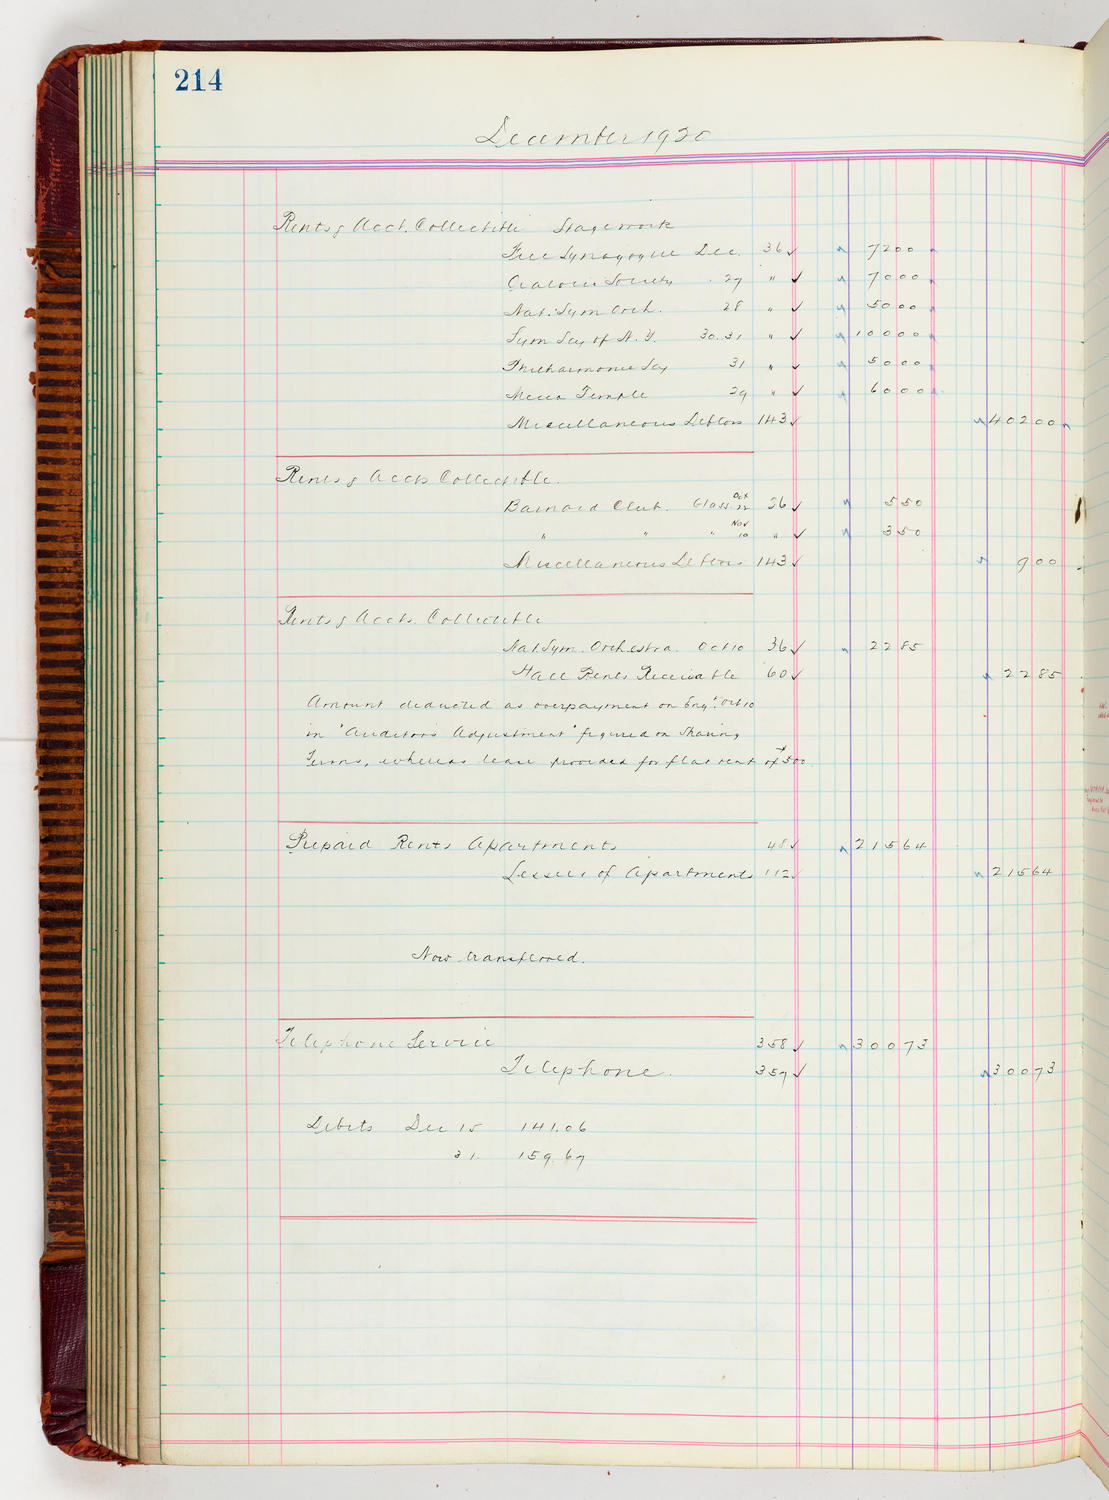 214
December 1920
Rents & Acct. Collectible Stagework
Free Synagogue Dec. 36 ✓ 7200
Oratorio Society 27 " ✓ 7000
Nat. Sym Orch. 28 " ✓ 5000
Sym Soy of N.Y. 30.31 " ✓ 10000
Philharmonic Soy 31 " ✓ 5000
Mecca Temple 29 " ✓ 6000
Miscellaneous Debtors 143 ✓ 40200
Rents & Accts Collectible.
Barnard Club. Glass. Oct 22 36 ✓ 550
" " " Nov 10 " ✓ 350
Miscellaneous Debtors 143 ✓ 900
Rents & Accts. Collectible
Nat. Sym. Orchestra. Oct 10 36 ✓ 2285
Hall Rents Receivable 60 ✓ 2285
Amount deducted as overpayment on Eng't. Oct 10
in "Auditors Adjustment" figured on Sharing
Terms, whereas lease provided for flat rent of $500.
Prepaid Rents Apartments 48 ✓ 21564
Lessees of Apartments 112 ✓ 21564
Now transferred.
Telephone Service 358 ✓ 30073
Telephone. 357 ✓ 30073
Debits Dec 15 141.06
31. 159.67